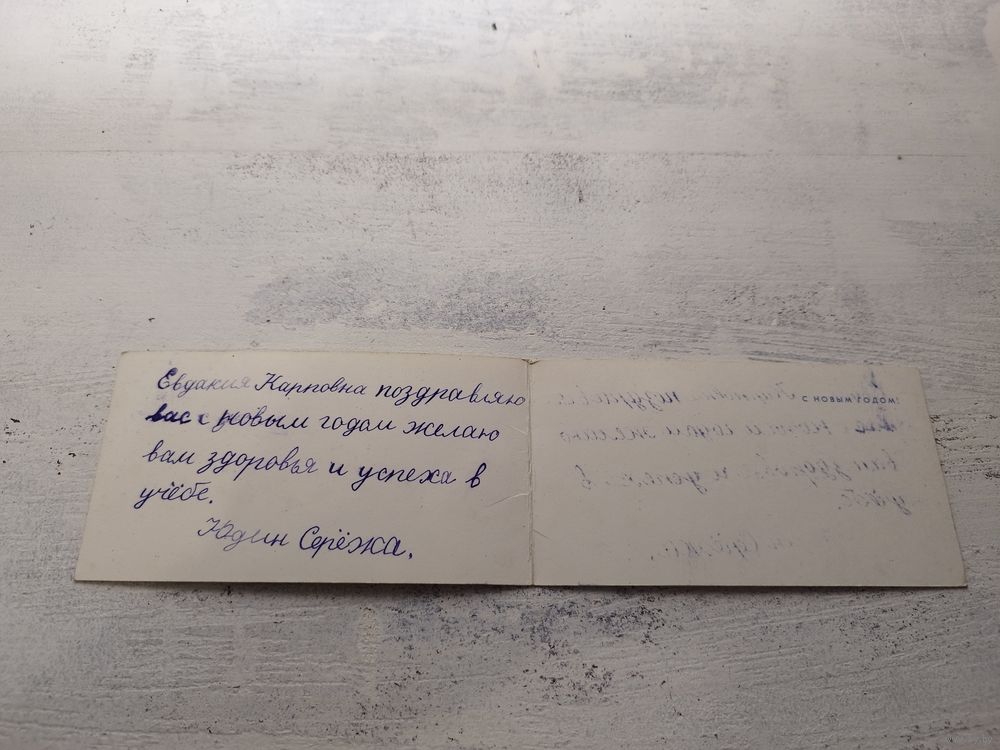 Евдакия Карповна поздравляю
вас с новым годом желаю
вам здоровья и успеха в
учёбе.
Юдин Серёжа.
С НОВЫМ ГОДОМ!